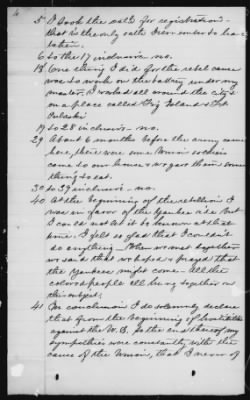 4
5 I took the oath for registration
that is the only oath I ever order to
tation.
6 to the 17 inclusive no.
18 One thing I did for the rebel cause
was to work on the battery under my
master, I worked all around the city &
on a place called Pig Island & Ft
Pulaski
19 to 28 inclusive - no.
29 About 6 months before the army came
here, there were some Union soldiers
came to our house & we gave them some
thing to eat.
30 to 39 inclusive - no.
40 At the beginning of the rebellion I
was in favor of the Yankee side but
I could not let it be known at that
time. I felt so glad that I couldn't
do anything - When we met together
we said that we hoped & prayed that
the Yankees might come - All the
colored people all being together on
this subject.
41 In conclusion I do solemnly declare
that from the beginning of hostilities
against the U.S. to the end thereof my
sympathies were constantly with the
cause of the Union, that I never of